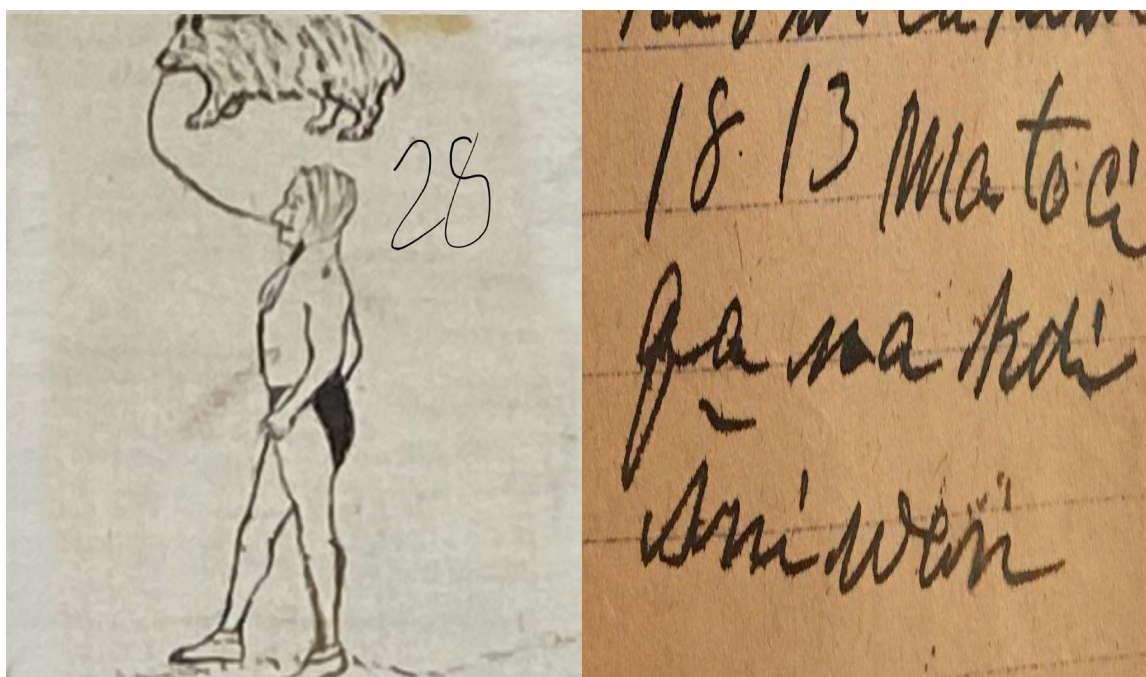 28
18 13 Matoci
qa na kdi
sni wen